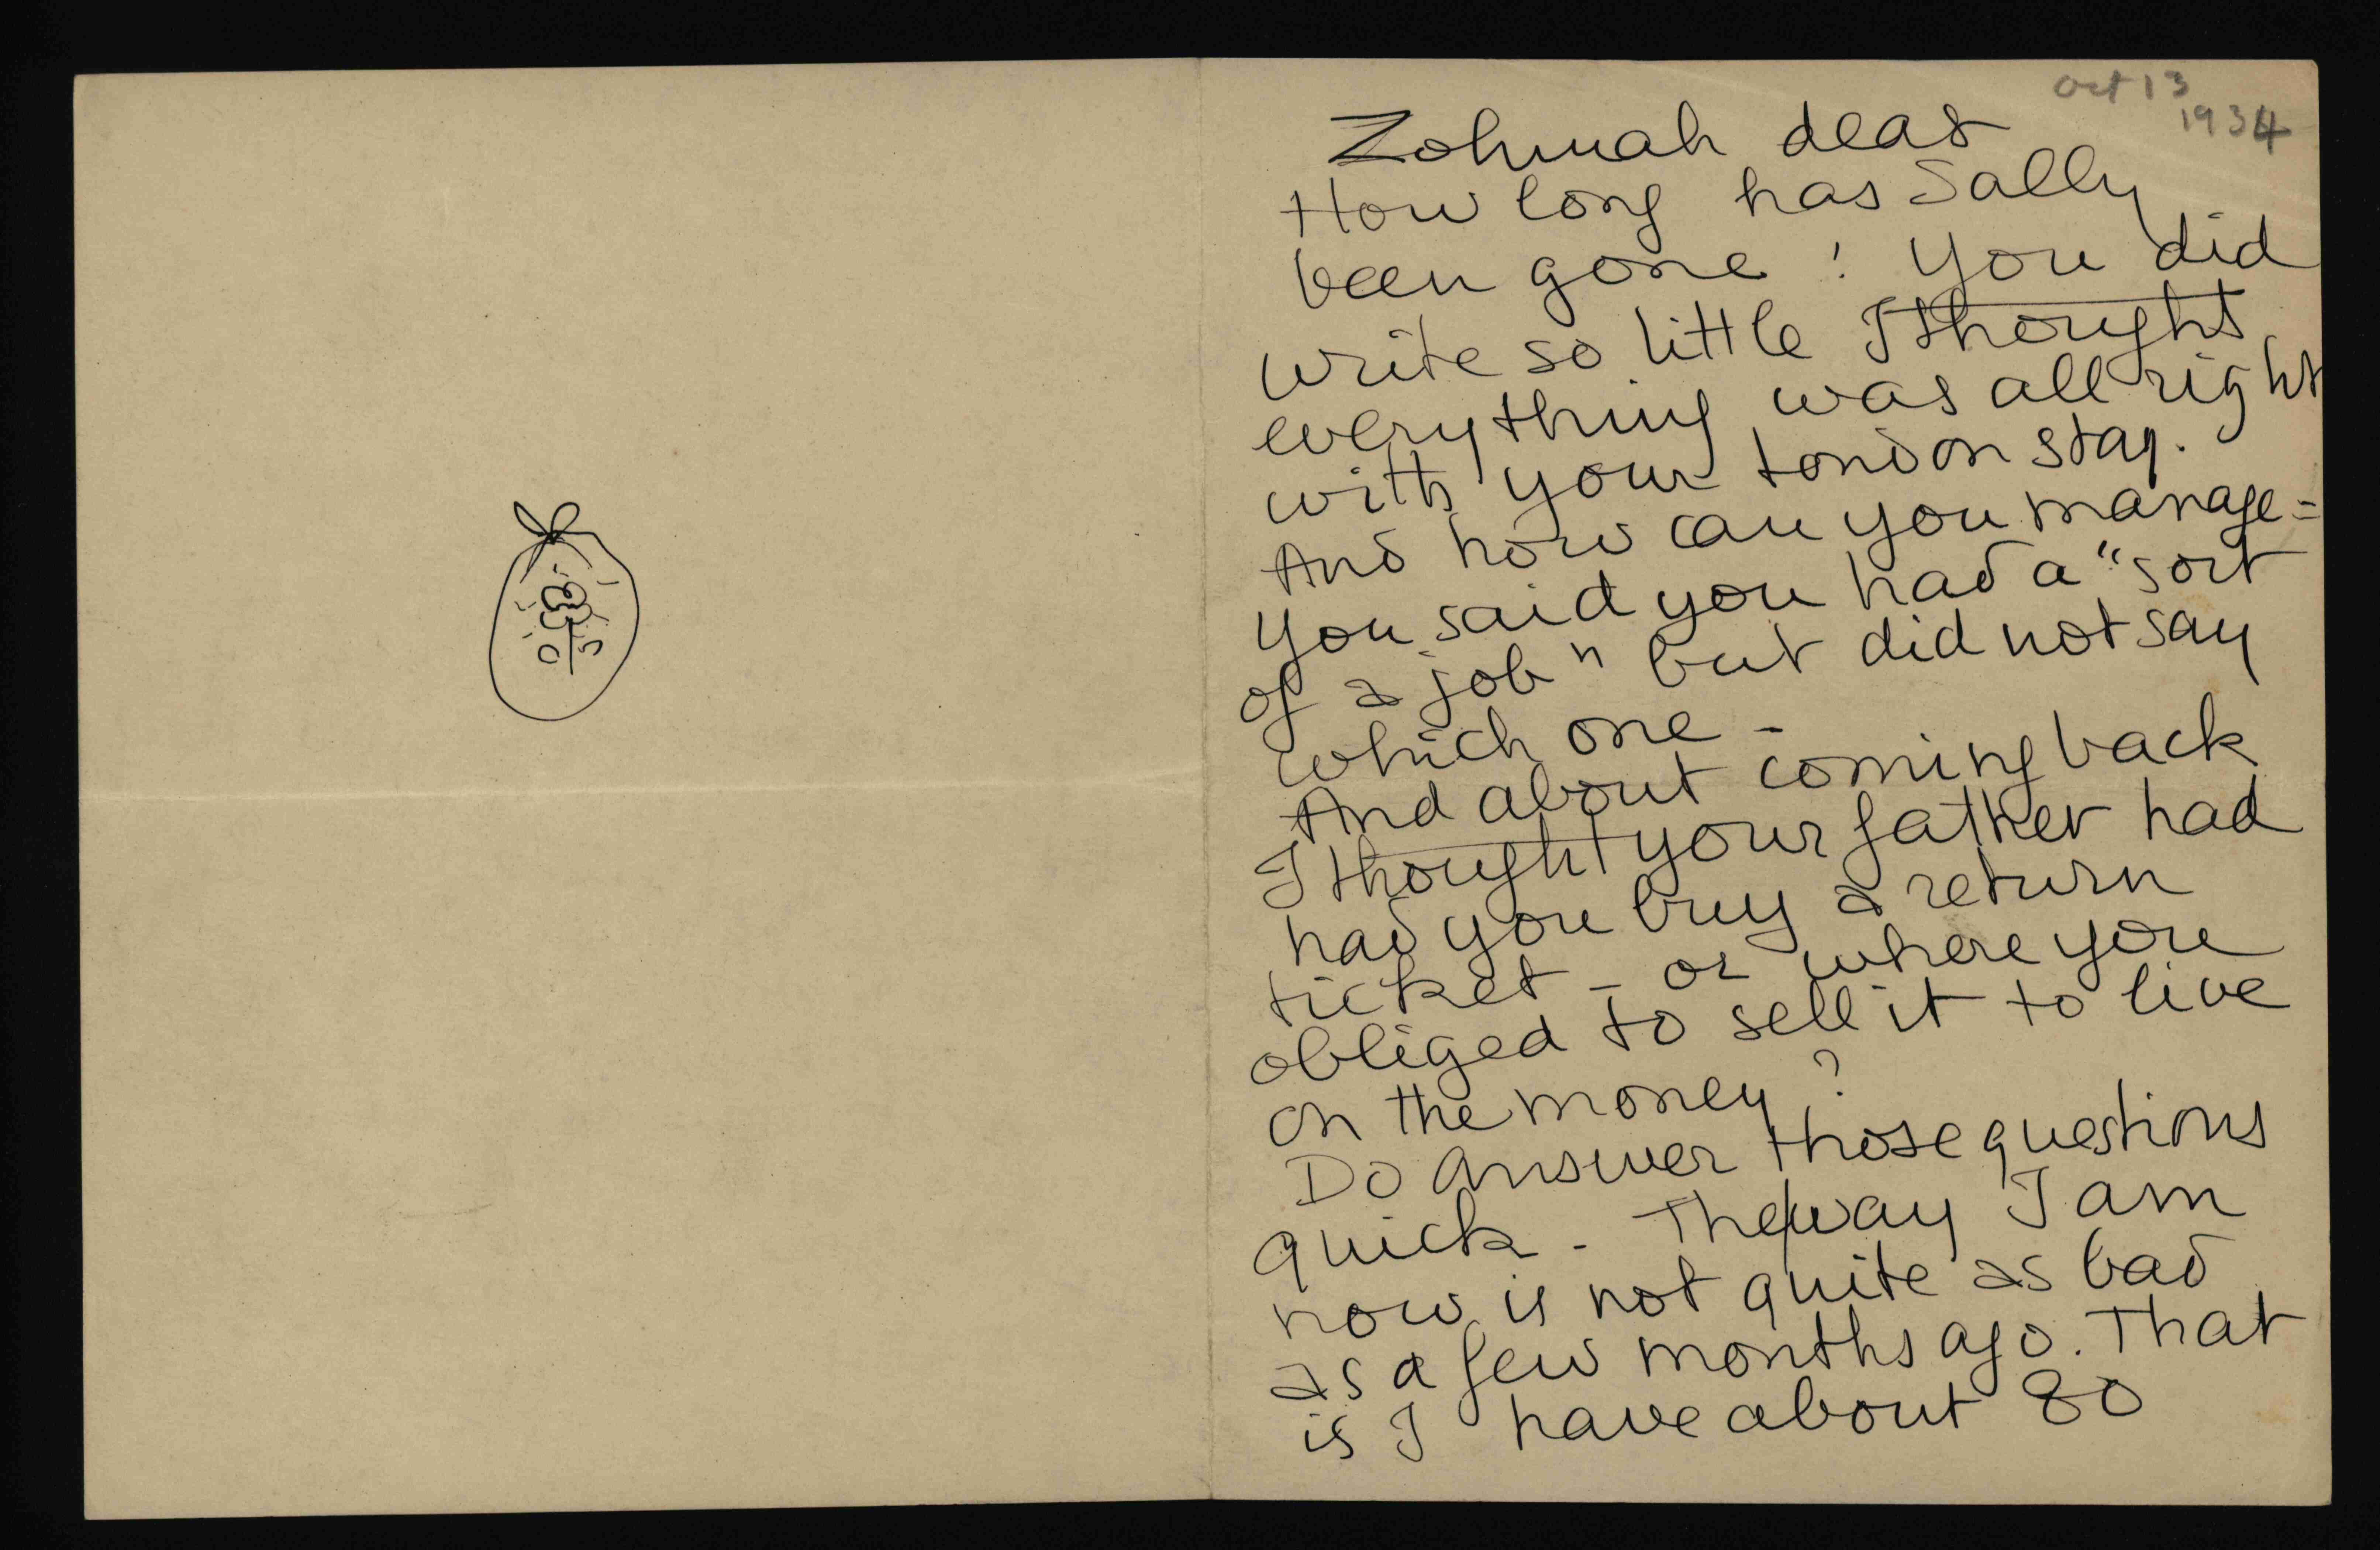 Oct 13
1934
Zohmah dear
How long has Sally
been gone ! You did
write so little I thought
everything was all right
with your London stay.
And how can you manage -
You said you had a "sort
of a job" but did not say
which one -
And about coming back
I thought your father had
had you buy a return
ticket - or where you
obliged to sell it to live
on the money ?
Do answer those questions
quick - The way I am
now is not quite as bad
as a few months ago. That
is I have about 80